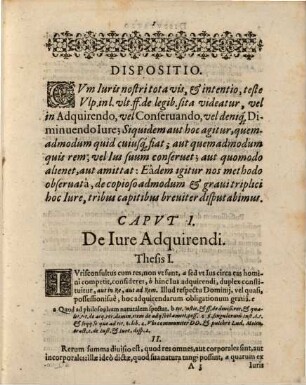 DISPOSITIO.
CVm Iuris nostri tota vis, & intentio, teste
Vlp. in l. vlt. ff. de legib. sita videatur, vel
in Adquirendo, vel Conseruando, vel deniq; Di-
minuendo Iure; Siquidem aut hoc agitur, quem-
admodum quid cuiusq; fiat; aut quemadmodum
quis rem; vel Ius suum conseruet; aut quomodo
alienet, aut amittat: Eâdem igitur nos methodo
obseruatâ, de copioso admodum & graui triplici
hoc Iure, tribus capitibus breuiter disputabimus.
CAPVT I.
De Iure Adquirendi.
Thesis I.
IVrisconsultus cum res, non vt sunt, a sed vt Ius circa eas homi-
ni competit, consideret, & hinc Ius adquirendi, duplex consti-
tuitur, aut in re, aut ad rem. Illud respectu Dominij, vel quasi,
possessionisue, hoc adquirendarum obligationum
a Quod ad philosophiam naturalem
II.
Rerum summa diuisio est, quod res omnes, aut corporales sint, aut
incorporales: illae ideò dictae, quod sua natura tangi possint, a quarum ex
A 3
Iuris